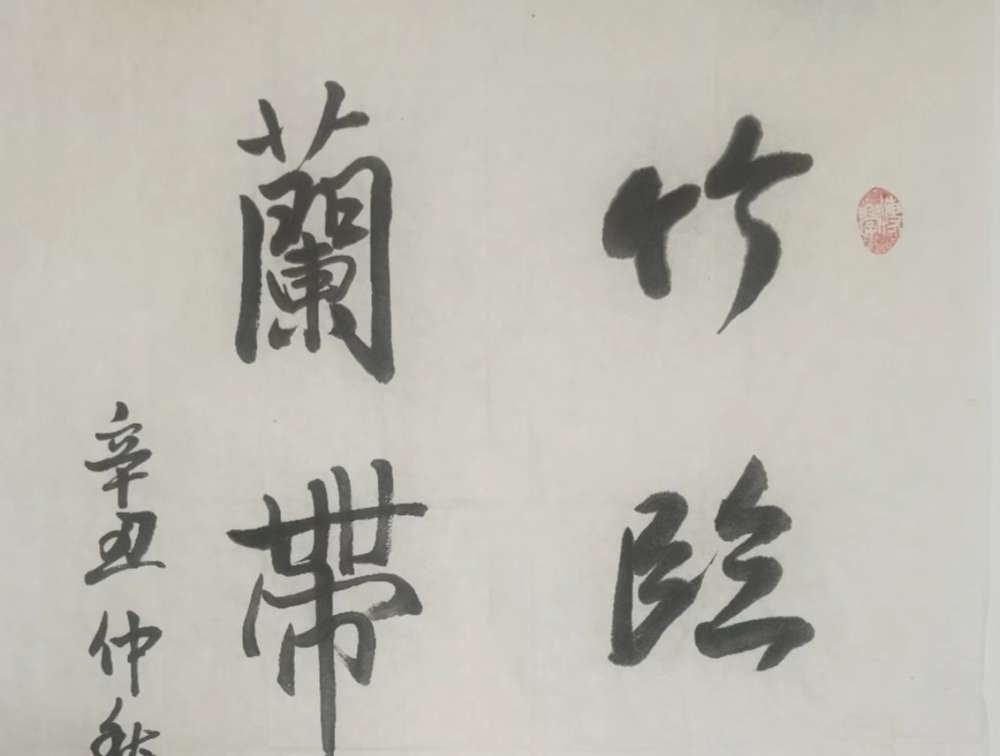 竹臨
蘭帶
辛丑仲秋